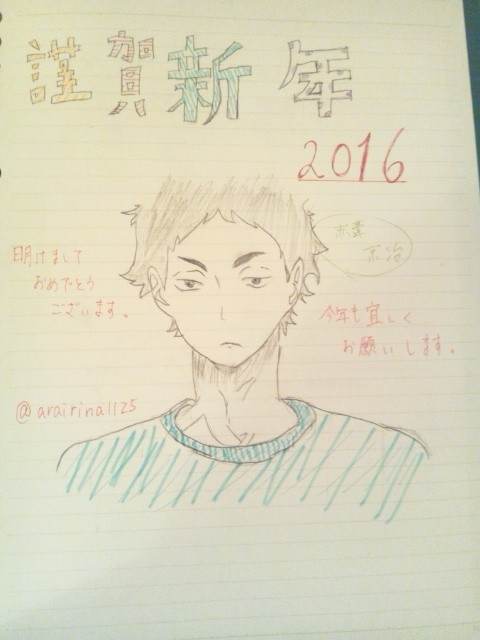 謹賀新年
2016
京治
明けまして
おめでとう
ございます。
今年も宜しく
お願いします。
@arairina1125